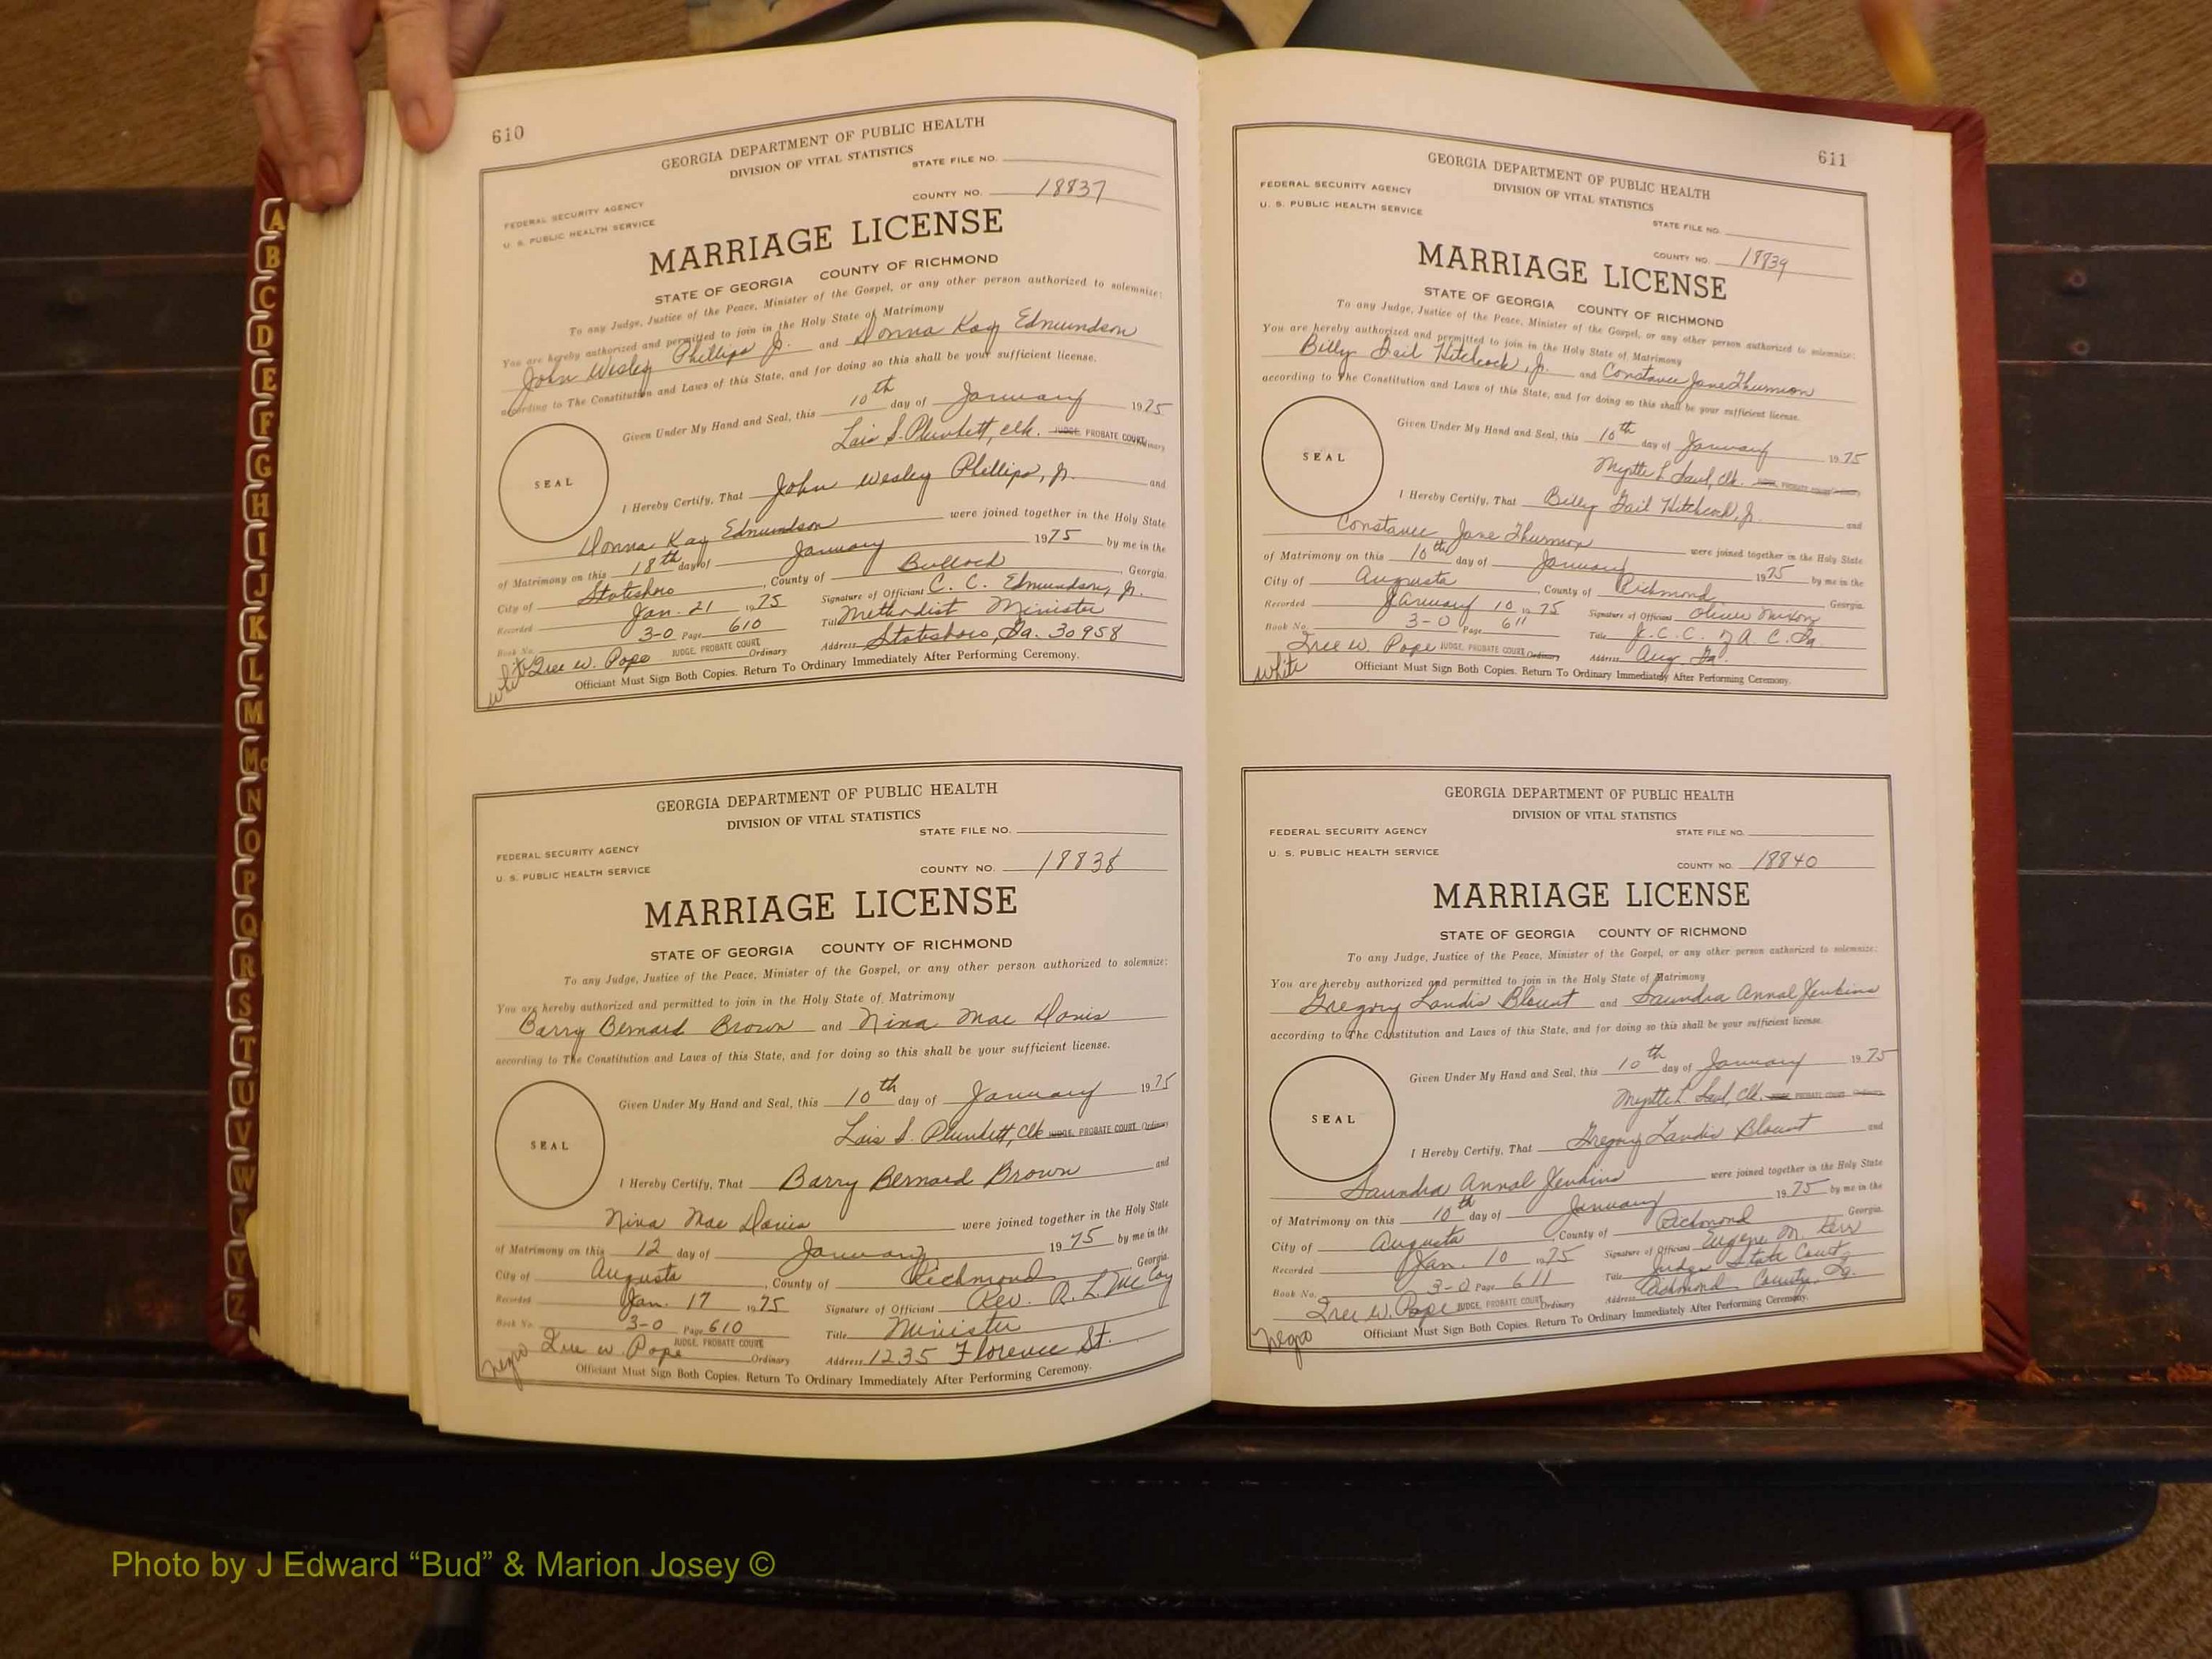 A
B
C
D
E
F
G
H
I
J
K
L
M
Mc
N
O
P
Q
R
S
T
U
V
W
Y
Z
610
GEORGIA DEPARTMENT OF PUBLIC HEALTH
DIVISION OF VITAL STATISTICS
STATE FILE NO.
FEDERAL SECURITY AGENCY
U. S. PUBLIC HEALTH SERVICE
COUNTY NO. 18837
MARRIAGE LICENSE
STATE OF GEORGIA COUNTY OF RICHMOND
To any Judge, Justice of the Peace, Minister of the Gospel, or any other person authorized to solemnize:
You are hereby authorized and permitted to join in the Holy State of Matrimony
John Wesley Phillips Jr. and Donna Kay Edmundson
according to The Constitution and Laws of this State, and for doing so this shall be your sufficient license.
Given Under My Hand and Seal, this 10th day of January 1975
Lois S. Plunkett, Clk. JUDGE, PROBATE COURT Ordinary
SEAL
I Hereby Certify, That John Wesley Phillips, Jr. and
Donna Kay Edmundson were joined together in the Holy State
of Matrimony on this 18th day of January 1975 by me in the
City of Statesboro, County of Bullock, Georgia.
Recorded Jan. 21 1975 Signature of Officiant C. C. Edmundson, Jr.
Book No. 3-O Page 610 Title Methodist Minister
Iree W. Pope JUDGE, PROBATE COURT Ordinary Address Statesboro, Ga. 30958
white
Officiant Must Sign Both Copies. Return To Ordinary Immediately After Performing Ceremony.
GEORGIA DEPARTMENT OF PUBLIC HEALTH
DIVISION OF VITAL STATISTICS
STATE FILE NO.
FEDERAL SECURITY AGENCY
U. S. PUBLIC HEALTH SERVICE
COUNTY NO. 18838
MARRIAGE LICENSE
STATE OF GEORGIA COUNTY OF RICHMOND
To any Judge, Justice of the Peace, Minister of the Gospel, or any other person authorized to solemnize:
You are hereby authorized and permitted to join in the Holy State of Matrimony
Barry Bernard Brown and Nina Mae Davis
according to The Constitution and Laws of this State, and for doing so this shall be your sufficient license.
Given Under My Hand and Seal, this 10th day of January 1975
Lois S. Plunkett, Clk JUDGE, PROBATE COURT Ordinary
SEAL
I Hereby Certify, That Barry Bernard Brown and
Nina Mae Davis were joined together in the Holy State
of Matrimony on this 12 day of January 1975 by me in the
City of Augusta, County of Richmond Georgia.
Recorded Jan. 17 1975 Signature of Officiant Rev. R. L. McCoy
Book No. 3-O Page 610 Title Minister
Iree W. Pope JUDGE, PROBATE COURT Ordinary Address 1235 Florence St.
negro
Officiant Must Sign Both Copies. Return To Ordinary Immediately After Performing Ceremony.
611
GEORGIA DEPARTMENT OF PUBLIC HEALTH
DIVISION OF VITAL STATISTICS
FEDERAL SECURITY AGENCY
U. S. PUBLIC HEALTH SERVICE
STATE FILE NO.
COUNTY NO. 18839
MARRIAGE LICENSE
STATE OF GEORGIA COUNTY OF RICHMOND
To any Judge, Justice of the Peace, Minister of the Gospel, or any other person authorized to solemnize:
You are hereby authorized and permitted to join in the Holy State of Matrimony
Billy Gail Hitchcock, Jr. and Constance Jane Thurmon
according to The Constitution and Laws of this State, and for doing so this shall be your sufficient license.
Given Under My Hand and Seal, this 10th day of January 1975
Myrtle L. Saul, Clk. JUDGE, PROBATE COURT Ordinary
SEAL
I Hereby Certify, That Billy Gail Hitchcock, Jr. and
Constance Jane Thurmon were joined together in the Holy State
of Matrimony on this 10th day of January 1975 by me in the
City of Augusta, County of Richmond Georgia
Recorded January 10 1975 Signature of Officiant Oliver Mixon
Book No. 3-O Page 611 Title J. C. C. of A. C. Ga.
Iree W. Pope JUDGE, PROBATE COURT Ordinary Address Aug Ga.
white
Officiant Must Sign Both Copies. Return To Ordinary Immediately After Performing Ceremony.
GEORGIA DEPARTMENT OF PUBLIC HEALTH
DIVISION OF VITAL STATISTICS
FEDERAL SECURITY AGENCY
STATE FILE NO.
U. S. PUBLIC HEALTH SERVICE
COUNTY NO. 18840
MARRIAGE LICENSE
STATE OF GEORGIA COUNTY OF RICHMOND
To any Judge, Justice of the Peace, Minister of the Gospel, or any other person authorized to solemnize:
You are hereby authorized and permitted to join in the Holy State of Matrimony
Gregory Landis Blount and Saundra Annal Jenkins
according to The Constitution and Laws of this State, and for doing so this shall be your sufficient license.
Given Under My Hand and Seal, this 10th day of January 1975
Myrtle L. Saul, Clk. JUDGE, PROBATE COURT Ordinary
SEAL
I Hereby Certify, That Gregory Landis Blount and
Saundra Annal Jenkins were joined together in the Holy State
of Matrimony on this 10th day of January 1975 by me in the
City of Augusta County of Richmond Georgia.
Recorded Jan. 10 1975 Signature of Officiant Eugene M. Kerr
Book No. 3-O Page 611 Title Judge State Court
Iree W. Pope JUDGE, PROBATE COURT Ordinary Address Richmond County, Ga.
negro
Officiant Must Sign Both Copies. Return To Ordinary Immediately After Performing Ceremony.
Photo by J Edward “Bud” & Marion Josey ©